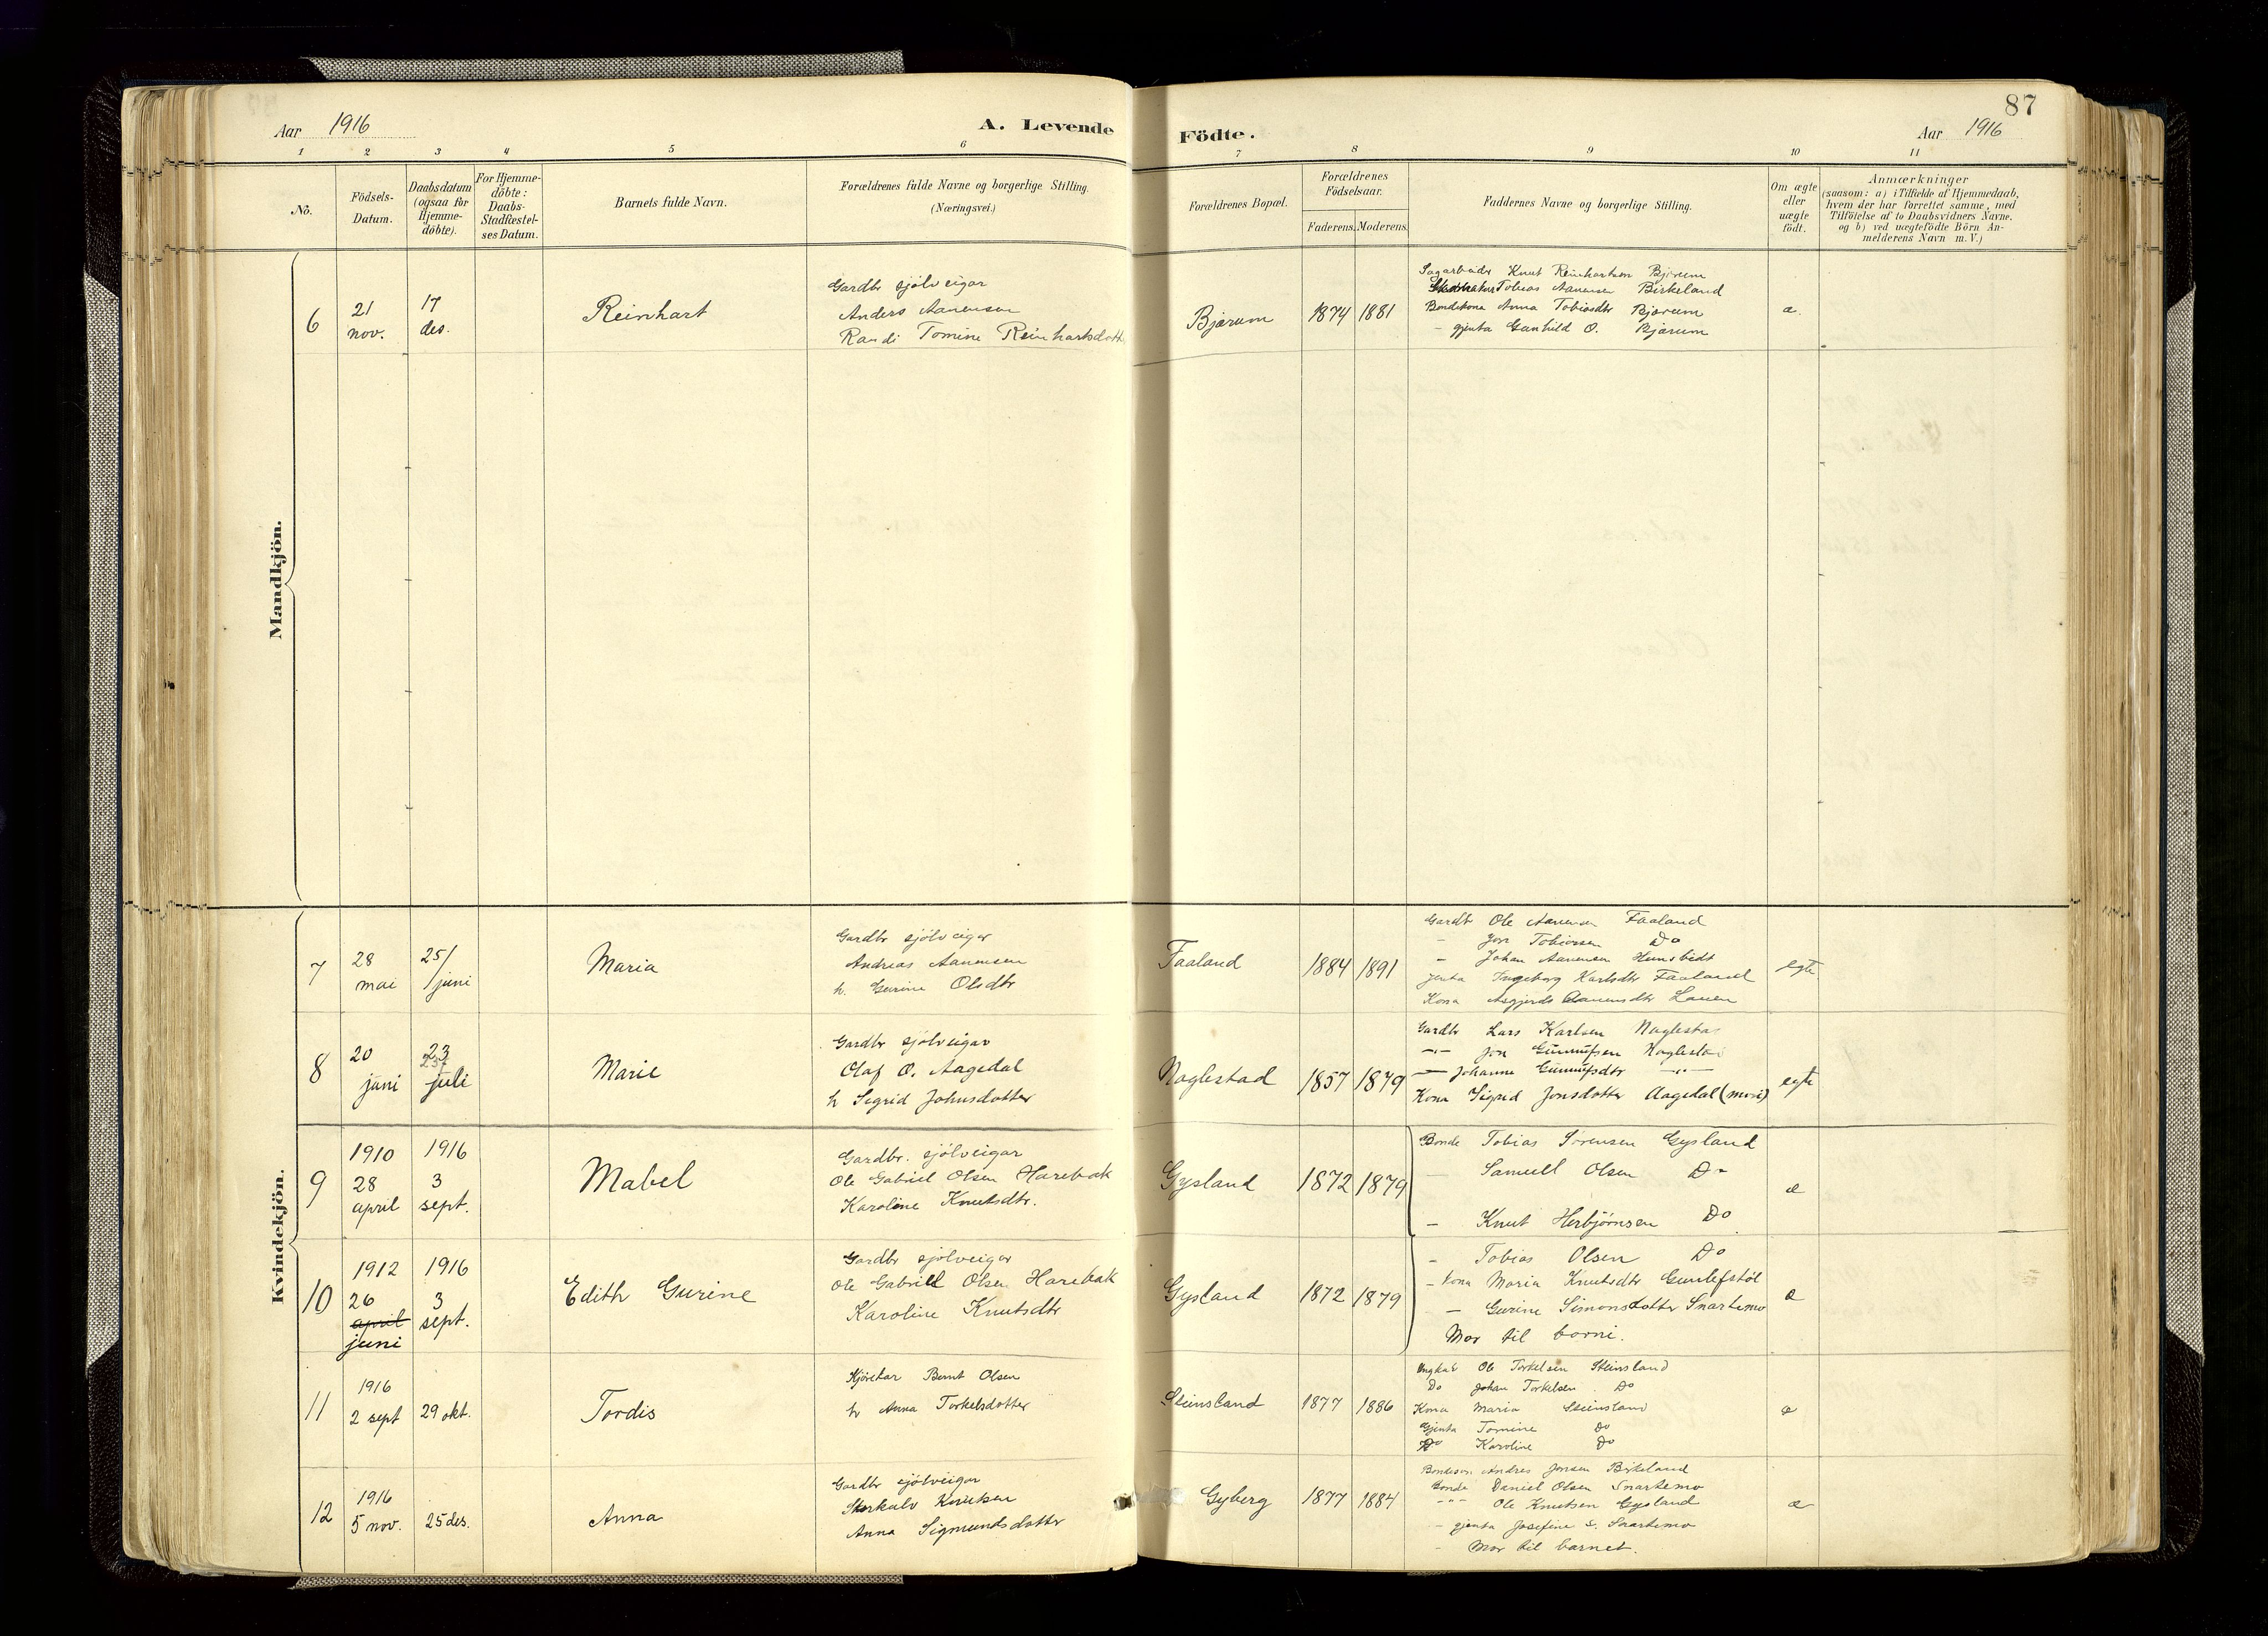 87
Aar 1916
A. Levende Födte.
Aar 1916
1 2 3 4 5 6 7 8 9 10 11
No.
Födsels-
Datum.
Daabsdatum
(ogsaa for
Hjemme-
döbte).
For Hjemme-
döbte:
Daabs-
Stadfæstel-
ses Datum.
Barnets fulde Navn.
Forældrenes fulde Navne og borgerlige Stilling.
(Næringsvei.)
Forældrenes Bopæl.
Forældrenes
Födselsaar.
Faderens. Moderens.
Faddernes Navne og borgerlige Stilling.
Om ægte
eller
uægte
födt.
Anmærkninger
(saasom: a) i Tilfælde af Hjemmedaab,
hvem der har forrettet samme, med
Tilföielse af to Daabsvidners Navne.
og b) ved uægtefödte Börn An-
melderens Navn m.V.)
Mandkjön.
6
21
nov.
17
des.
Reinhart
Gardbr sjölveigar
Anders Aanensen
Randi Tomine Reinhartsdott
Bjærum
1874 1881
Sagarbeider Knut Reinhartsen Bjærum
Tobias Aanensen Birkeland
Bondekona Anna Tobiasdtr Bjærum
- gjenta Gunhild O. Bjærum
æ.
Kvindekjön.
7
28
mai
25/
/juni
Maria
Gardbr sjölveigar
Andreas Aanensen
h. Gurine Olsdtr
Faaland
1884 1891
Gardbr Ole Aanensen Faaland
- Jon Tobiassen Do
- Johan Aanensen Hunsbedt
Jenta Ingeborg Karlsdtr Faaland
Kona Asgjerds Aanensdtr Lauen
egte
8
20
juni
23
juli
Marie
Gardbr sjölveigar
Olaf O. Aagedal
h Sigrid Johnsdotter
Naglestad
1857 1879
Gardbr Lars Karlsen Naglestad
-"- Jon Gunnufsen Naglestad
- Johanne Gunnufsdtr -"-
Kona Sigrid Jonsdotter Aagedal (mori)
egte
9
1910
28
april
1916
3
sept.
Mabel
Gardbr. sjölveigar
Ole Gabriel Olsen Harebak
Karoline Knutsdtr.
Gysland
1872 1879
Bonde Tobias Sörensen Gysland
- Samuell Olsen Do
- Knut Herbjörnsen Do
æ
10
1912
26
april
juni
1916
3
sept.
Edith Gurine
Gardbr sjölveigar
Ole Gabriell Olsen Harebak
Karoline Knutsdtr
Gysland
1872 1879
- Tobias Olsen Do
- kona Maria Knutsdtr Gunlefstöl
- Gurine Simonsdotter Snartemo
Mor til borni.
æ
11
1916
2 sept
29 okt.
Tordis
Kjörekar Bernt Olsen
h Anna Torkelsdotter
Steinsland
1877 1886
Ungkar Ole Torkelsen Steinsland
Do Johan Torkelsen Do
Kona Maria Steinsland
Gjenta Tomine Do
Do Karoline Do
æ
12
1916
5 nov.
25 des.
Anna
Gardbr sjölveigar
Storkalv Knutsen
Anna Sigmundsdotter
Gyberg
1877 1884
Bondeson Andres Jonsen Birkeland
Bonde Daniel Olsen Snartemo
-"- Ole Knutsen Gysland
- gjenta Josefine S. Snartemo
- Mor til barnet.
æ